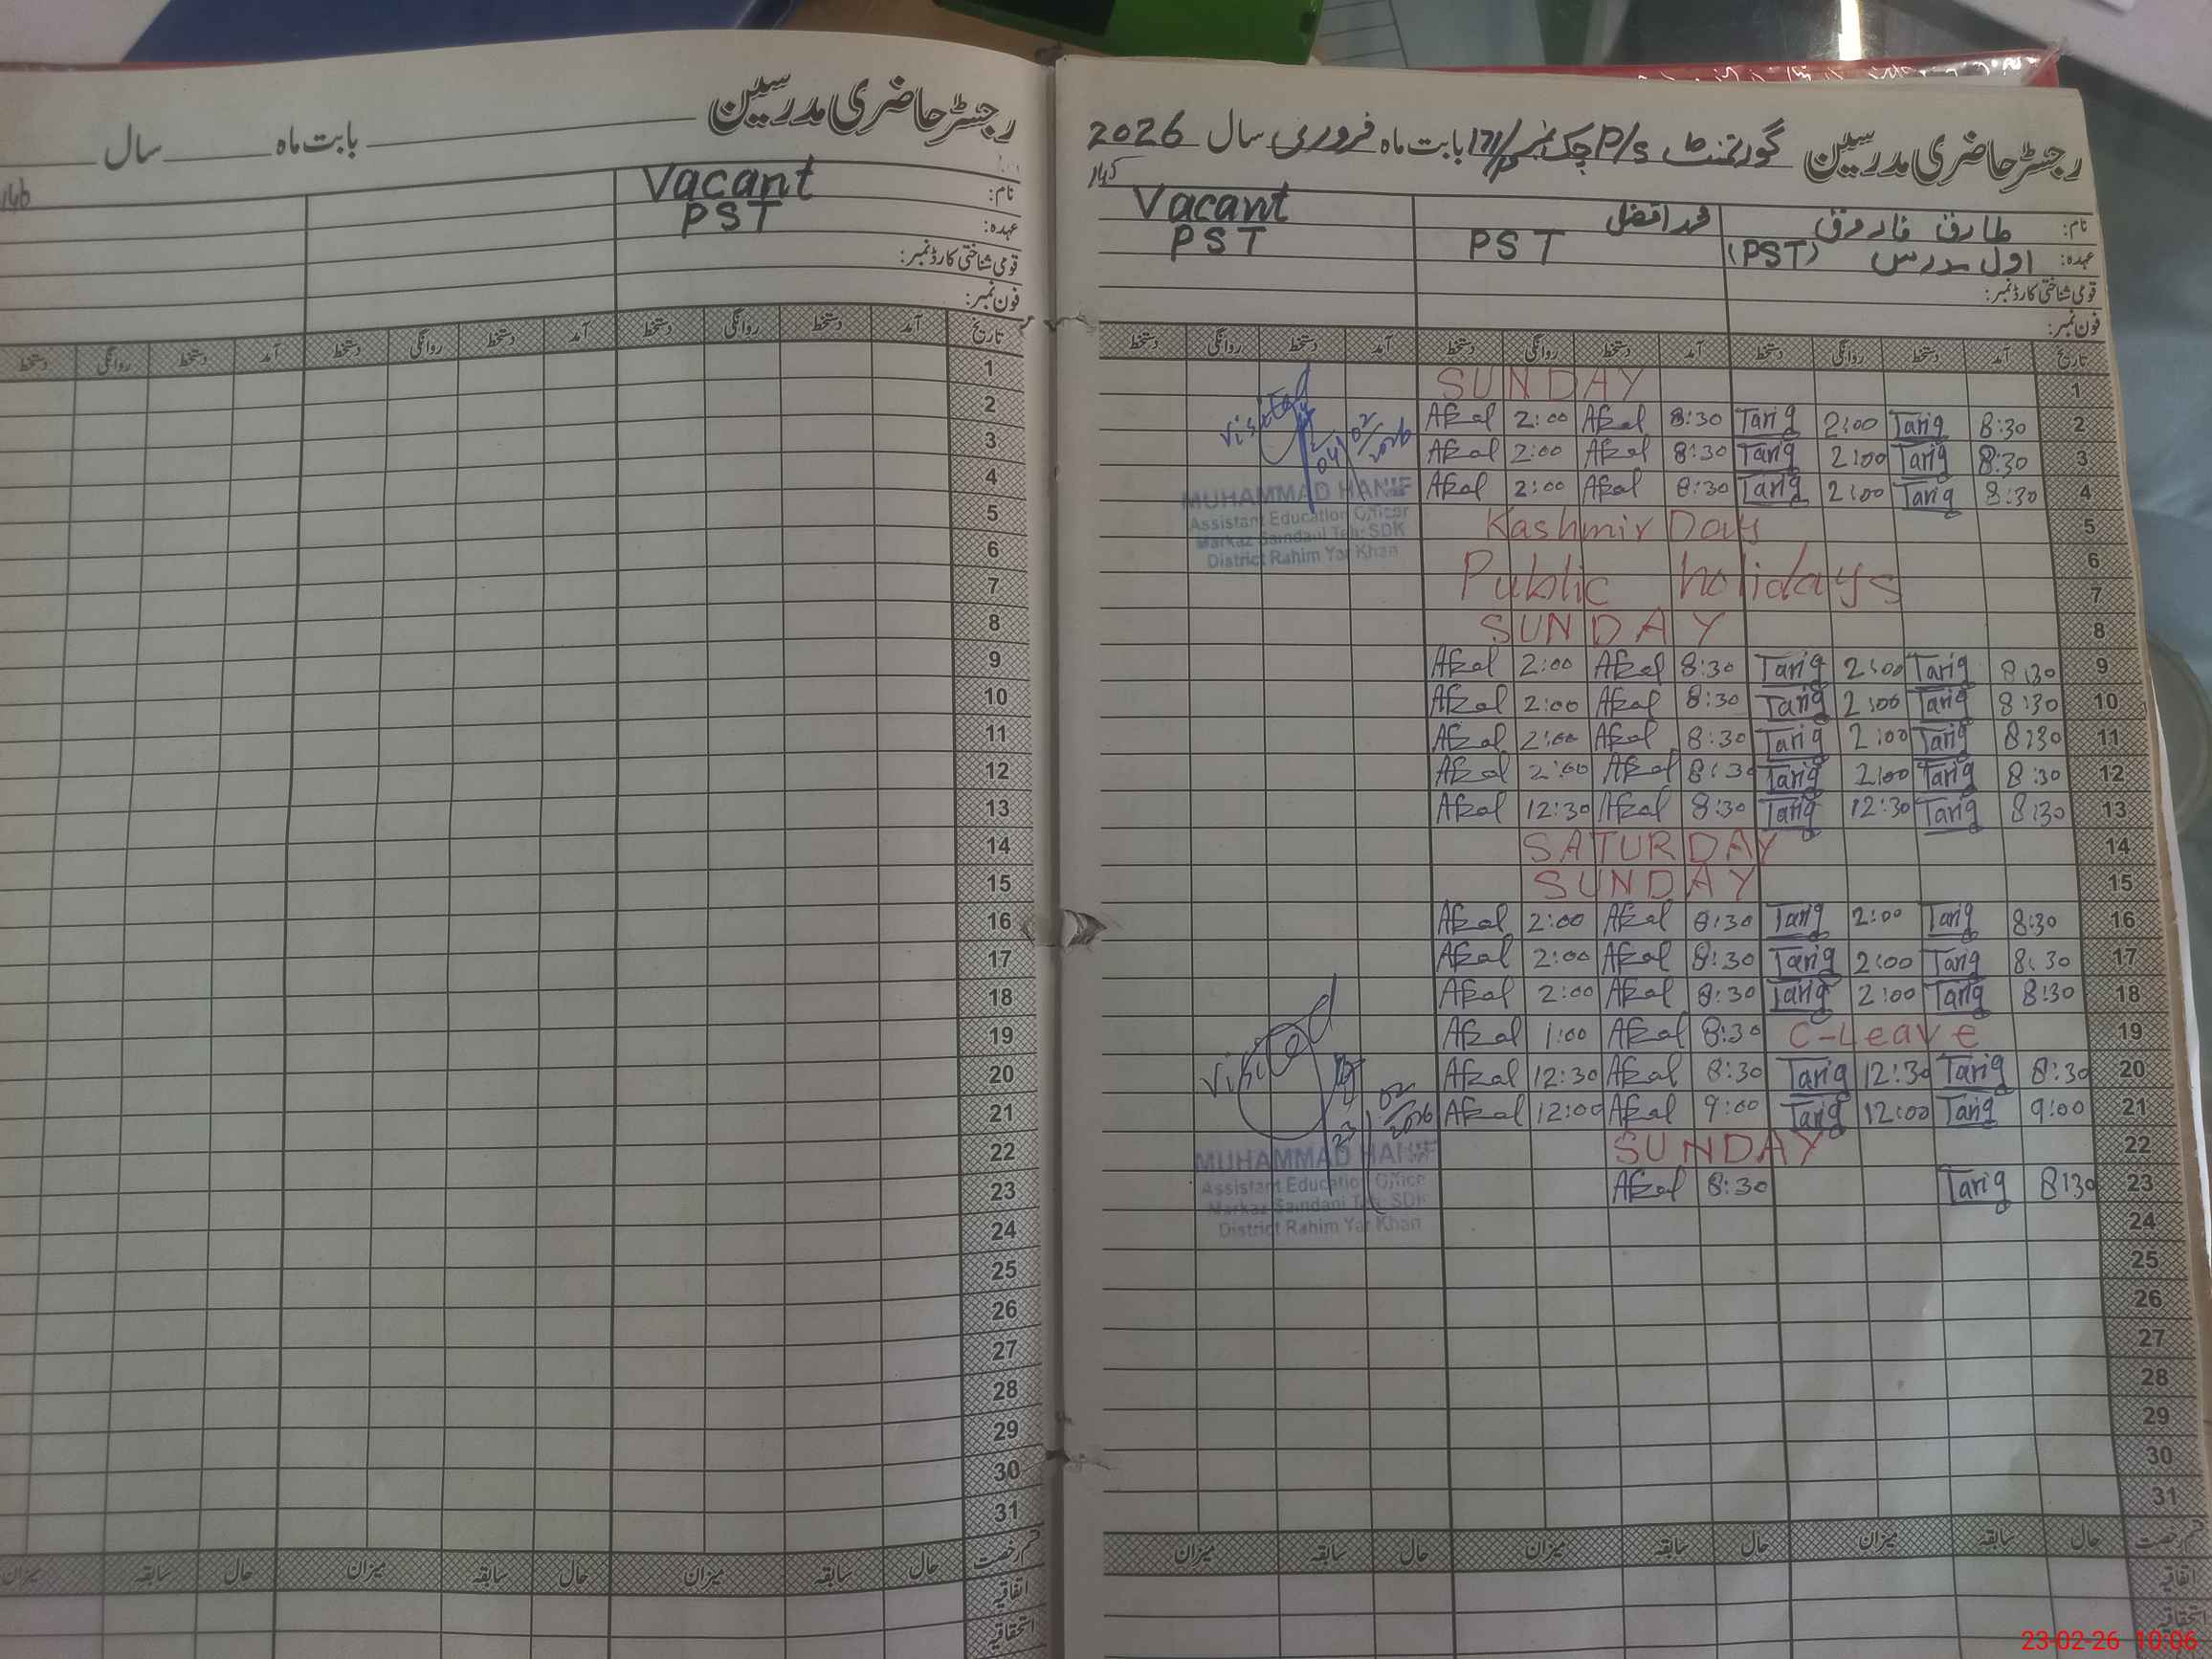 رجسٹر حاضری مدرسین گورنمنٹ P/S چک نمبر 171/P بابت ماہ فروری سال 2026
145
نام: طارق فاروق محمد افضل Vacant
عہدہ: اول مدرس (PST) PST PST
قومی شناختی کارڈ نمبر:
فون نمبر:
تاریخ آمد دستخط روانگی دستخط آمد دستخط روانگی دستخط آمد دستخط روانگی دستخط
1 SUNDAY
2 8:30 Tariq 2:00 Tariq 8:30 Afzal 2:00 Afzal
3 8:30 Tariq 2:00 Tariq 8:30 Afzal 2:00 Afzal
4 8:30 Tariq 2:00 Tariq 8:30 Afzal 2:00 Afzal
5 Kashmir Day
6
7 Public holidays
8 SUNDAY
9 8:30 Tariq 2:00 Tariq 8:30 Afzal 2:00 Afzal
10 8:30 Tariq 2:00 Tariq 8:30 Afzal 2:00 Afzal
11 8:30 Tariq 2:00 Tariq 8:30 Afzal 2:00 Afzal
12 8:30 Tariq 2:00 Tariq 8:30 Afzal 2:00 Afzal
13 8:30 Tariq 12:30 Tariq 8:30 Afzal 12:30 Afzal
14 SATURDAY
15 SUNDAY
16 8:30 Tariq 2:00 Tariq 8:30 Afzal 2:00 Afzal
17 8:30 Tariq 2:00 Tariq 8:30 Afzal 2:00 Afzal
18 8:30 Tariq 2:00 Tariq 8:30 Afzal 2:00 Afzal
19 C-Leave 8:30 Afzal 1:00 Afzal
20 8:30 Tariq 12:30 Tariq 8:30 Afzal 12:30 Afzal
21 9:00 Tariq 12:00 Tariq 9:00 Afzal 12:00 Afzal
22 SUNDAY
23 8:30 Tariq 8:30 Afzal
24
25
26
27
28
29
30
31
قسم رخصت حال سابقہ میزان حال سابقہ میزان حال سابقہ میزان
اتفاقیہ
استحقاقیہ
Visited
04/02/2026
MUHAMMAD HANIF
Assistant Education Officer
Markaz Samdani Teh: SDK
District Rahim Yar Khan
Visited
23/02/2026
MUHAMMAD HANIF
Assistant Education Officer
Markaz Samdani Teh: SDK
District Rahim Yar Khan
رجسٹر حاضری مدرسین بابت ماہ سال
146
نام: Vacant
عہدہ: PST
قومی شناختی کارڈ نمبر:
فون نمبر:
تاریخ آمد دستخط روانگی دستخط آمد دستخط روانگی دستخط آمد دستخط روانگی دستخط
1
2
3
4
5
6
7
8
9
10
11
12
13
14
15
16
17
18
19
20
21
22
23
24
25
26
27
28
29
30
31
قسم رخصت حال سابقہ میزان حال سابقہ میزان حال سابقہ میزان
اتفاقیہ
استحقاقیہ
23-02-26 10:06